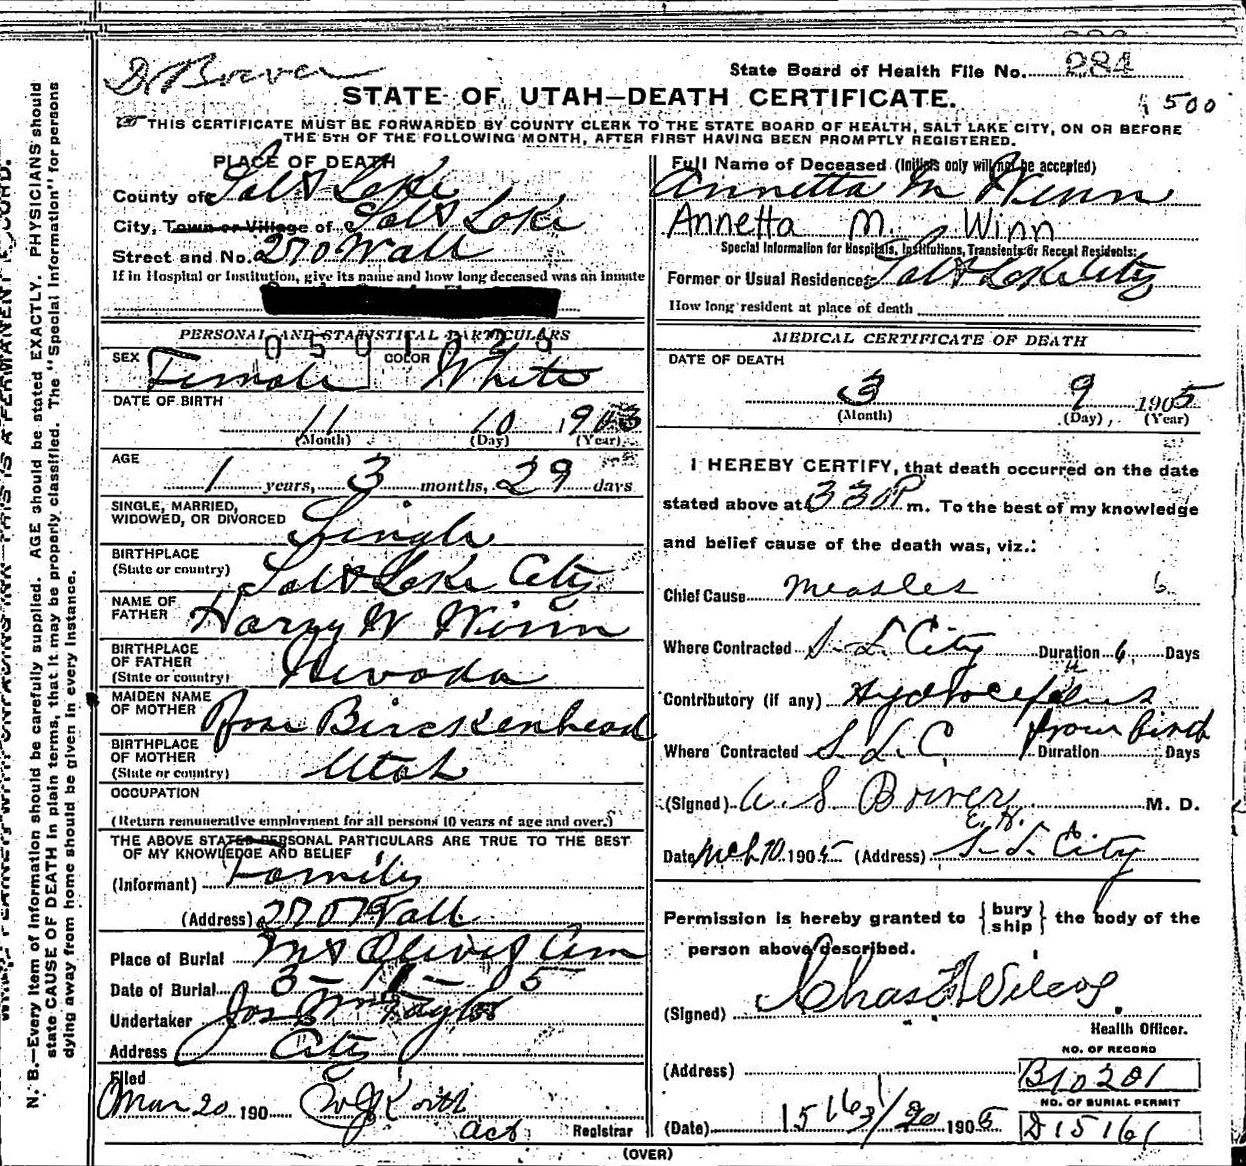 Dr Bower
State Board of Health File No. 284
STATE OF UTAH—DEATH CERTIFICATE.
1500
THIS CERTIFICATE MUST BE FORWARDED BY COUNTY CLERK TO THE STATE BOARD OF HEALTH, SALT LAKE CITY, ON OR BEFORE
THE 5TH OF THE FOLLOWING MONTH, AFTER FIRST HAVING BEEN PROMPTLY REGISTERED.
PLACE OF DEATH
County of Salt Lake
City, Town or Village of Salt Lake
Street and No. 270 Wall
If in Hospital or Institution, give its name and how long deceased was an inmate
Full Name of Deceased (Initials only will not be accepted)
Annetta M Winn
Annetta M. Winn
Special Information for Hospitals, Institutions, Transients or Recent Residents:
Former or Usual Residence Salt Lake City
How long resident at place of death
PERSONAL AND STATISTICAL PARTICULARS
SEX Female COLOR White
DATE OF BIRTH
11 10 1903
(Month) (Day) (Year)
AGE
1 years, 3 months, 29 days
SINGLE, MARRIED,
WIDOWED, OR DIVORCED Single
BIRTHPLACE
(State or country) Salt Lake City
NAME OF
FATHER Harry W Winn
BIRTHPLACE
OF FATHER
(State or country) Nevada
MAIDEN NAME
OF MOTHER Rose Birckenhead
BIRTHPLACE
OF MOTHER
(State or country) Utah
OCCUPATION
(Return remunerative employment for all persons 10 years of age and over.)
THE ABOVE STATED PERSONAL PARTICULARS ARE TRUE TO THE BEST
OF MY KNOWLEDGE AND BELIEF
(Informant) Family
(Address) 270 Wall
Place of Burial Mt Olivet Cem
Date of Burial 3-11-5
Undertaker Jos Wm Taylor
Address City
Filed
Mar 20 190
Act Registrar
MEDICAL CERTIFICATE OF DEATH
DATE OF DEATH
3 9 1905
(Month) (Day), (Year)
I HEREBY CERTIFY, that death occurred on the date
stated above at 330 P m. To the best of my knowledge
and belief cause of the death was, viz.:
Chief Cause Measles 6
Where Contracted S. L. City Duration 6 Days
Contributory (if any) Hydrocefalus
from birth
Where Contracted S L C Duration Days
(Signed) A S Bower M. D.
E. K.
Date Mch 10 1905 (Address) S. L. City
Permission is hereby granted to {bury ship} the body of the
person above described.
(Signed) Chas F Wilcox
Health Officer.
NO. OF RECORD
(Address) B10201
NO. OF BURIAL PERMIT
(Date) 15161 3/20 1905 D15161
(OVER)
N. B.—Every item of information should be carefully supplied. AGE should be stated EXACTLY. PHYSICIANS should
state CAUSE OF DEATH in plain terms, that it may be properly classified. The "Special Information" for persons
dying away from home should be given in every instance.